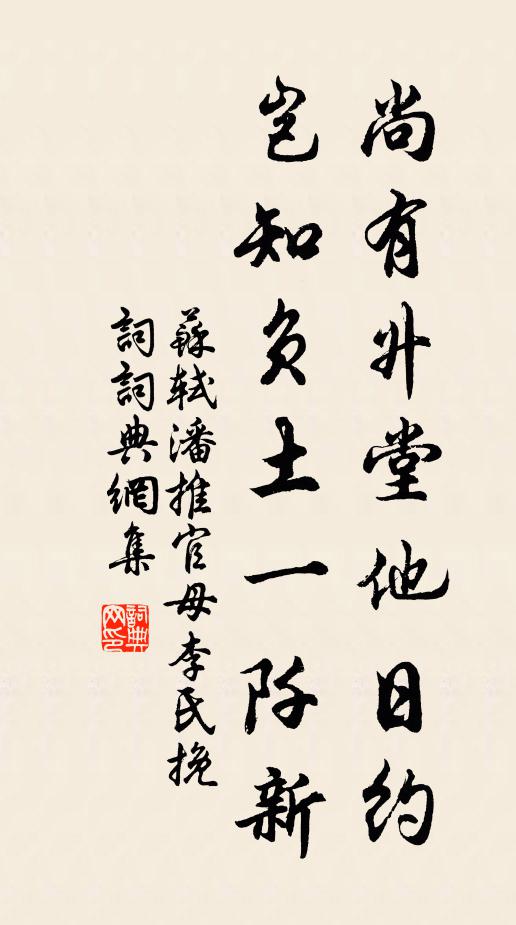 尚有升堂他日約
豈知負土一阡新
蘇軾潘推官母李氏挽
詞詞典網集
詞典网印